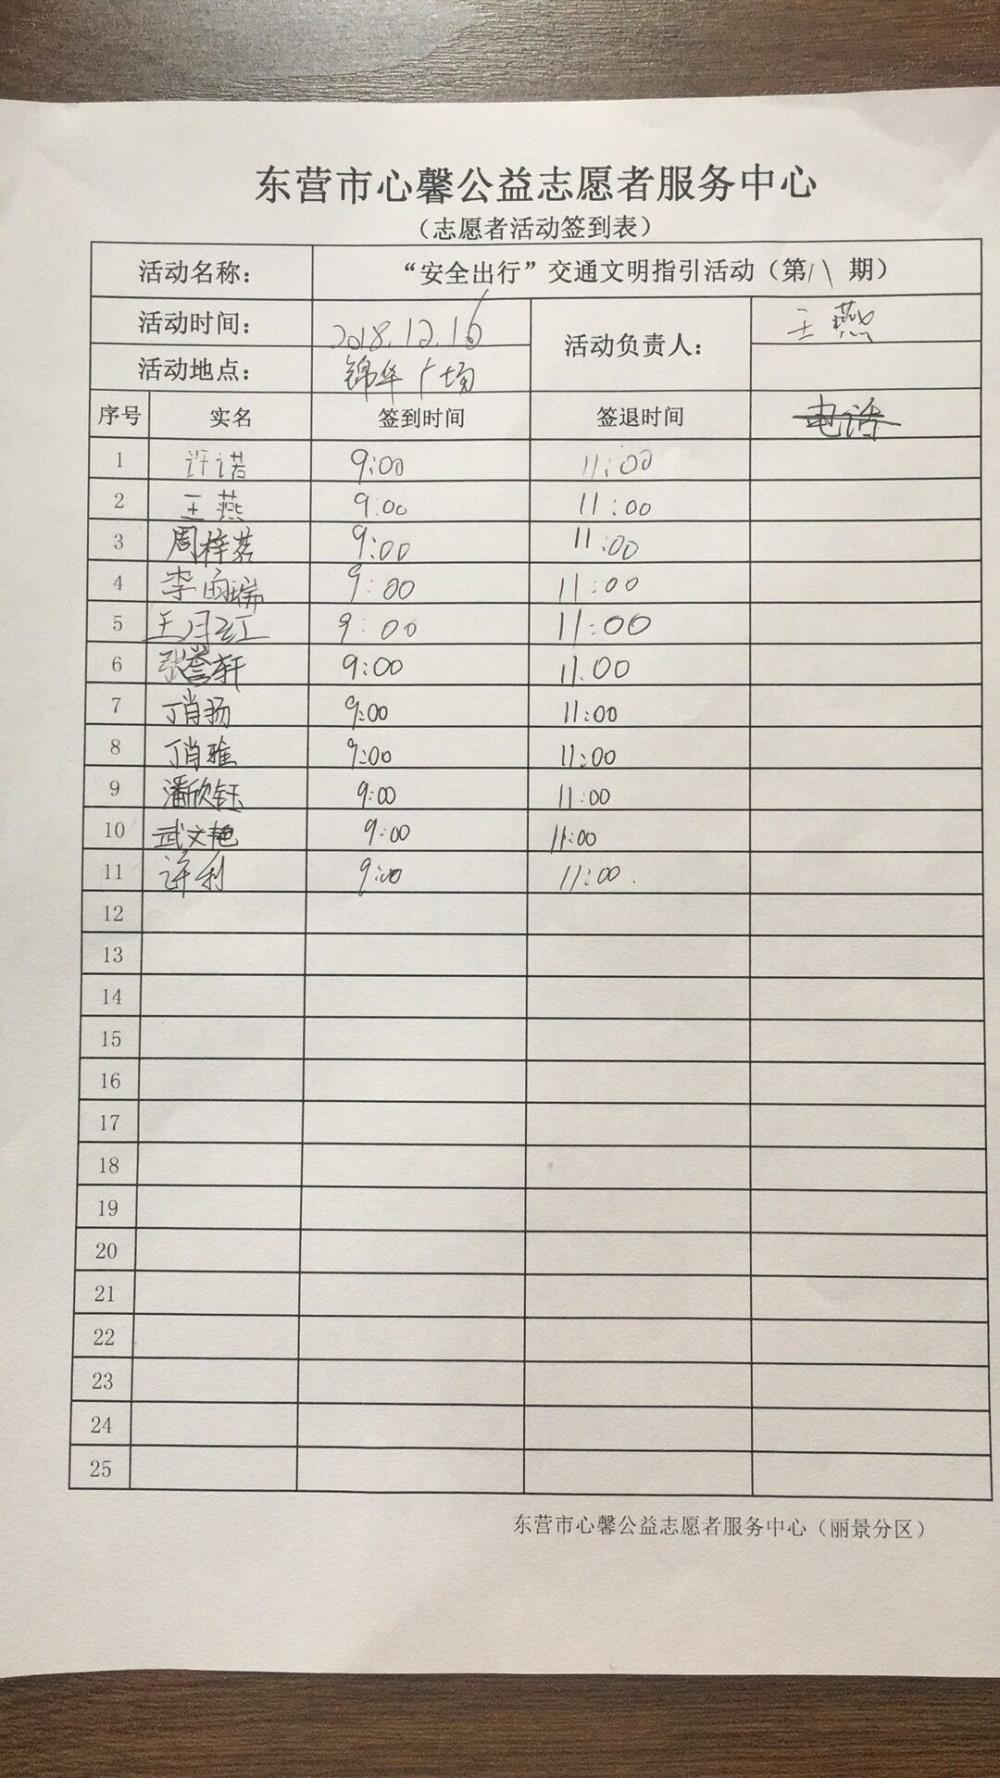 东营市心馨公益志愿者服务中心
（志愿者活动签到表）
活动名称： “安全出行”交通文明指引活动（第八期）
活动时间： 2018.12.16 活动负责人： 王燕
活动地点： 锦华广场
序号 实名 签到时间 签退时间 电话
1 许诺 9:00 11:00
2 王燕 9:00 11:00
3 周梓茗 9:00 11:00
4 李雨瑞 9:00 11:00
5 王月红 9:00 11:00
6 张誉轩 9:00 11.00
7 丁肖扬 9:00 11:00
8 丁肖雅 9:00 11:00
9 潘欣钰 9:00 11:00
10 武文艳 9:00 11:00
11 许利 9:00 11:00.
12
13
14
15
16
17
18
19
20
21
22
23
24
25
东营市心馨公益志愿者服务中心（丽景分区）